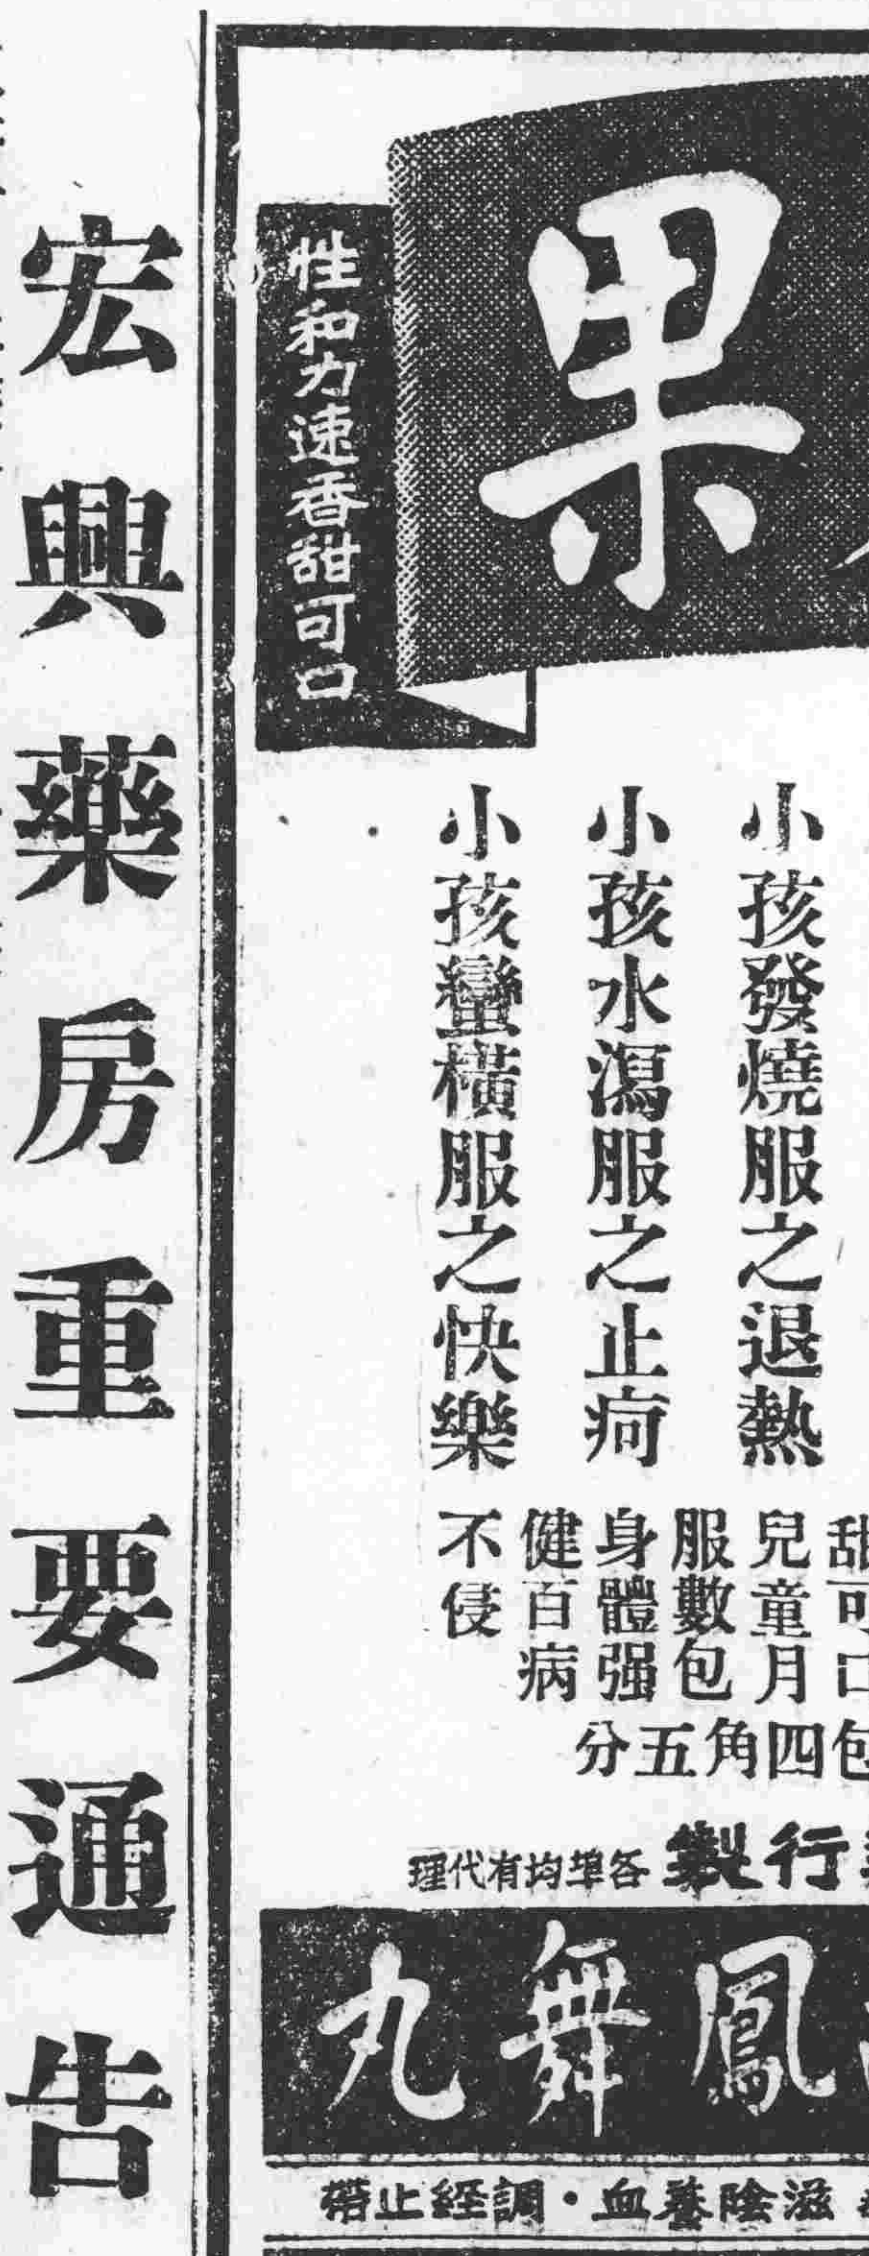 果
性和力速香甜可口
小孩發燒服之退熱
小孩水瀉服之止疴
小孩蠻橫服之快樂
甜可口
兒童月
服數包
身體强
健百病
不侵
包四角五分
行製
各埠均有代理
鳳舞丸
滋陰養血·調經止帶
宏興藥房重要通告